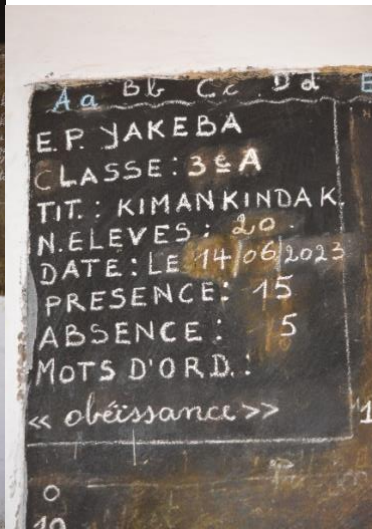 Aa Bb Cc Dd E
E.P. YAKEBA
CLASSE: 3e A
TIT.: KIMANKINDA K.
N.ELEVES: 20.
DATE: LE 14/06/2023
PRESENCE: 15
ABSENCE: 5
MOTS D'ORD.:
« obéissance »
1
0
10